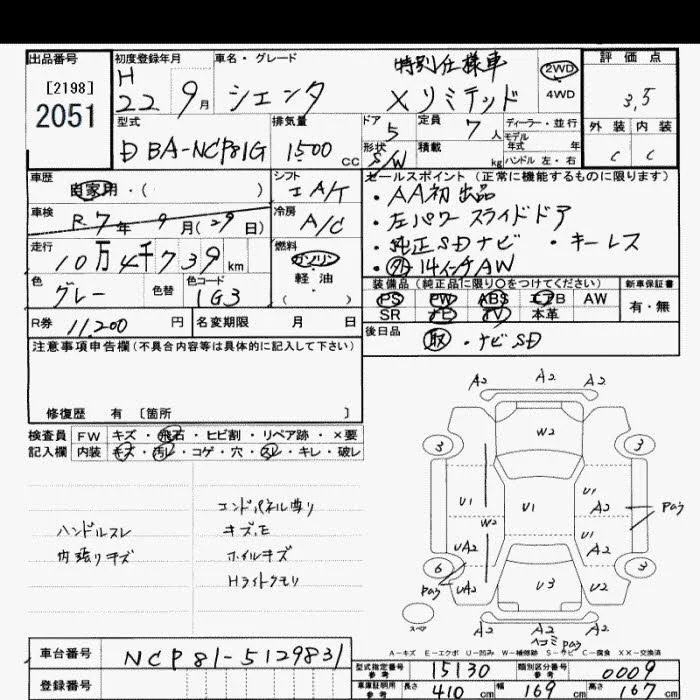 出品番号
[2198]
2051
初度登録年月
H
22 9月
車名・グレード
シエンタ
特別仕様車
Xリミテッド
2WD
4WD
評価点
3,5
外装 内装
C C
型式
DBA-NCP81G
排気量
1500 CC
ドア
5
形状
S/W
定員
7人
積載
kg
ディーラー・並行
モデル
年式 年
ハンドル 左・右
車歴
自家用・( )
車検
R7年 9月(29日)
走行
10万4千739km
色
グレー
色替
色コード
1G3
シフト
IA/T
冷房
A/C
燃料
ガソリン
軽油
( )
R券 11,200円
名変期限 月 日
セールスポイント(正常に機能するものに限ります)
・AA初出品
・左パワースライドドア
・純正SDナビ ・キーレス
・外14インチAW
装備品(純正品に限り○をつけてください)
PS PW ABS エアB AW
SR ナビ TV 本革
新車保証書
有・無
後日品
取・ナビSD
注意事項申告欄(不具合内容等は具体的に記入して下さい)
修復歴 有〔箇所 〕
検査員
記入欄
FW キズ・飛石・ヒビ割・リペア跡・×要
内装 キズ・汚レ・コゲ・穴・スレ・キレ・破レ
ハンドルスレ
内張りキズ
エンドパネル曲り
キズ.モ
ホイルキズ
Hライトクモリ
A2 A2 A2
W2
3 3
U1 U1 U1
A2
paj
W2
UA2 U1
A2
6 3
paj UA2 U3 U2
スペア
A2 A2 A2
ヘコミ paj
A-キズ E-エクボ U-凹み W-補修跡 S-サビ C-腐食 XX-交換済
車台番号 NCP81-5129831
登録番号
型式指定番号
参考
15130
類別区分番号
参考
0009
車庫証明用
参考
長さ 410 cm 幅 169 cm 高さ 167 cm